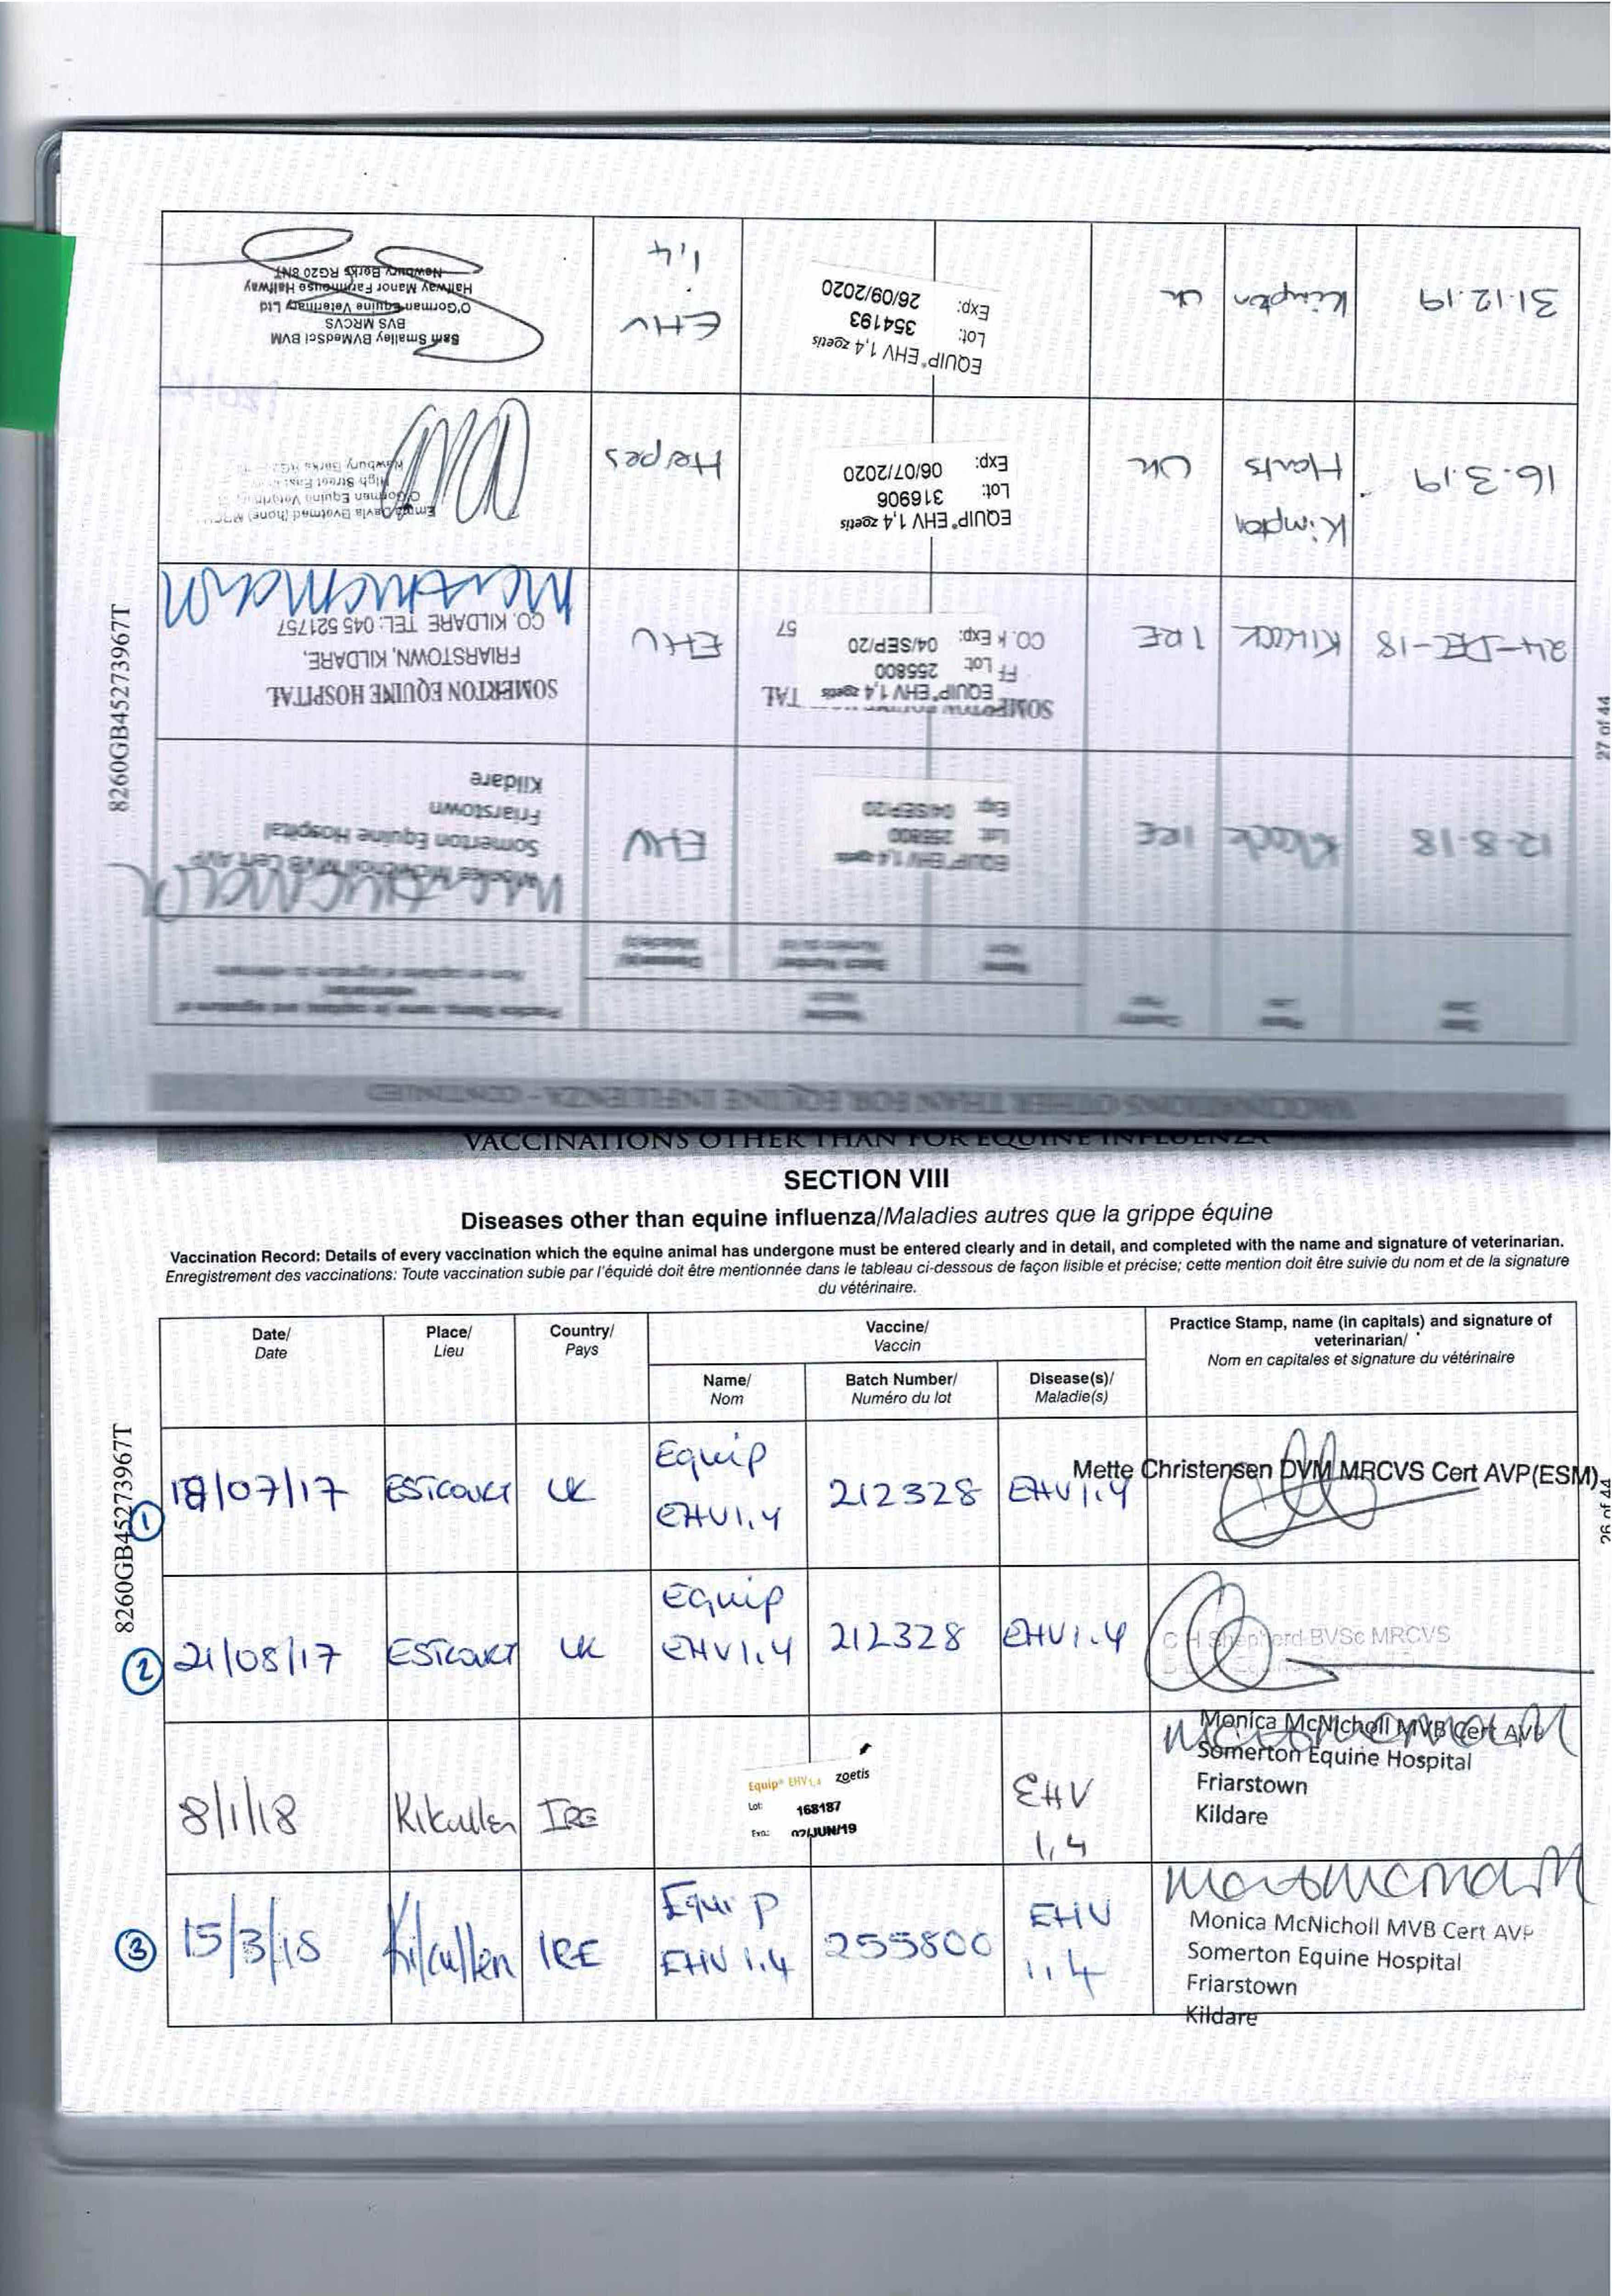 VACCINATIONS OTHER THAN FOR EQUINE INFLUENZA
SECTION VIII
Diseases other than equine influenza/Maladies autres que la grippe équine
Vaccination Record: Details of every vaccination which the equine animal has undergone must be entered clearly and in detail, and completed with the name and signature of veterinarian.
Enregistrement des vaccinations: Toute vaccination subie par l'équidé doit être mentionnée dans le tableau ci-dessous de façon lisible et précise; cette mention doit être suivie du nom et de la signature
du vétérinaire.
Date/
Date
Place/
Lieu
Country/
Pays
Vaccine/
Vaccin
Name/
Nom
Batch Number/
Numéro du lot
Disease(s)/
Maladie(s)
Practice Stamp, name (in capitals) and signature of
veterinarian/
Nom en capitales et signature du vétérinaire
8260GB45273967T
26 of 44
1
/07/17
ESTCOURT
UK
Equip
EHV1.4
212328
EHV1.4
Mette Christensen DVM MRCVS Cert AVP(ESM)
2
21/08/17
ESTCOURT
UK
Equip
EHV1.4
212328
EHV1.4
C H Shepherd BVSc MRCVS
8/1/18
Kilcullen
IRE
Equip® EHV 1,4 zoetis
Lot: 168187
Exp.: 02/JUN/19
EHV
1,4
Monica McNicholl MVB Cert AVP
Somerton Equine Hospital
Friarstown
Kildare
3
15/3/18
Kilcullen
IRE
Equip
EHV 1.4
255800
EHV
1,4
Monica McNicholl MVB Cert AVP
Somerton Equine Hospital
Friarstown
Kildare
VACCINATIONS OTHER THAN FOR EQUINE INFLUENZA - CONTINUED
Practice Stamp, name (in capitals) and signature of
8260GB45273967T
27 of 44
12-8-18
Kilcock
IRE
EQUIP® EHV 1,4 zoetis
Lot: 255800
Exp: 04/SEP/20
EHV
Somerton Equine Hospital
Friarstown
Kildare
24-DEC-18
Kilcock
IRE
EQUIP® EHV 1,4 zoetis
Lot: 255800
Exp: 04/SEP/20
57
EHV
SOMERTON EQUINE HOSPITAL
FRIARSTOWN, KILDARE,
CO. KILDARE TEL: 045 521757
16.3.19
Kimpton
Hants
UK
EQUIP® EHV 1,4 zoetis
Lot: 316906
Exp: 06/07/2020
Herpes
O'Gorman Equine
High Street East
Newbury Berks
31.12.19
Kimpton
UK
EQUIP® EHV 1,4 zoetis
Lot: 354193
Exp: 26/09/2020
EHV
1,4
Sam Smalley BVMedSci BVM
BVS MRCVS
O'Gorman Equine Veterinary Ltd
Halfway Manor Farmhouse Halfway
Newbury Berks RG20 8NT